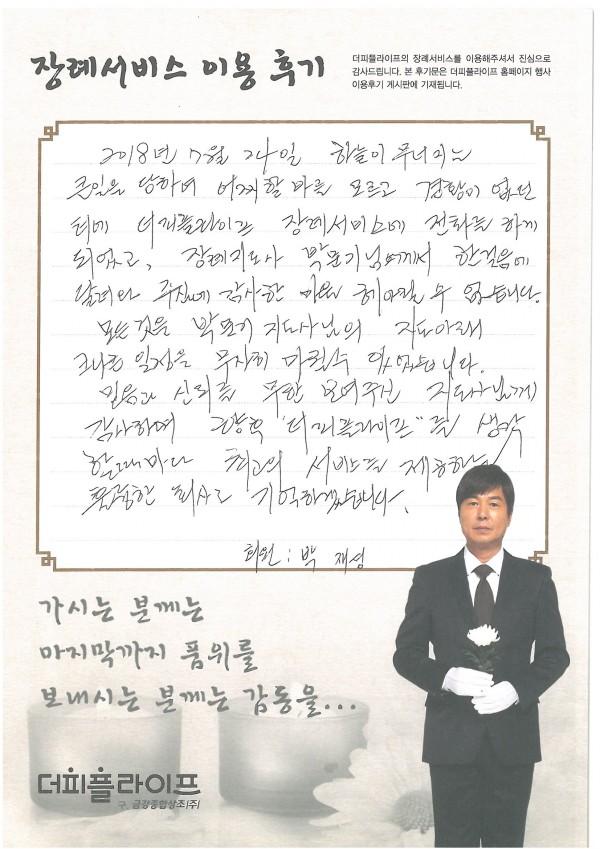 장례서비스 이용 후기
더피플라이프의 장례서비스를 이용해주셔서 진심으로
감사드립니다. 본 후기문은 더피플라이프 홈페이지 행사
이용후기 게시판에 기재됩니다.
2018년 7월 24일 하늘이 무너지는
큰일을 당하며 어찌할 바를 모르고 경황이 없던
터에 더피플라이프 장례서비스에 전화를 하게
되었고, 장례지도사 박문기님께서 한걸음에
달려와 주심에 감사한 마음 헤아릴 수 없습니다.
모든것을 박문기 지도사님의 지도아래
3일 일정을 무사히 마칠수 있었습니다.
믿음과 신뢰를 무한 보여주신 지도사님께
감사하며 "더피플라이프"를 생각
할때마다 최고의 서비스를 제공하는
훌륭한 회사로 기억하겠습니다.
회원 : 박 재성
가시는 분께는
마지막까지 품위를
보내시는 분께는 감동을...
더피플라이프
구. 금강종합상조(주)